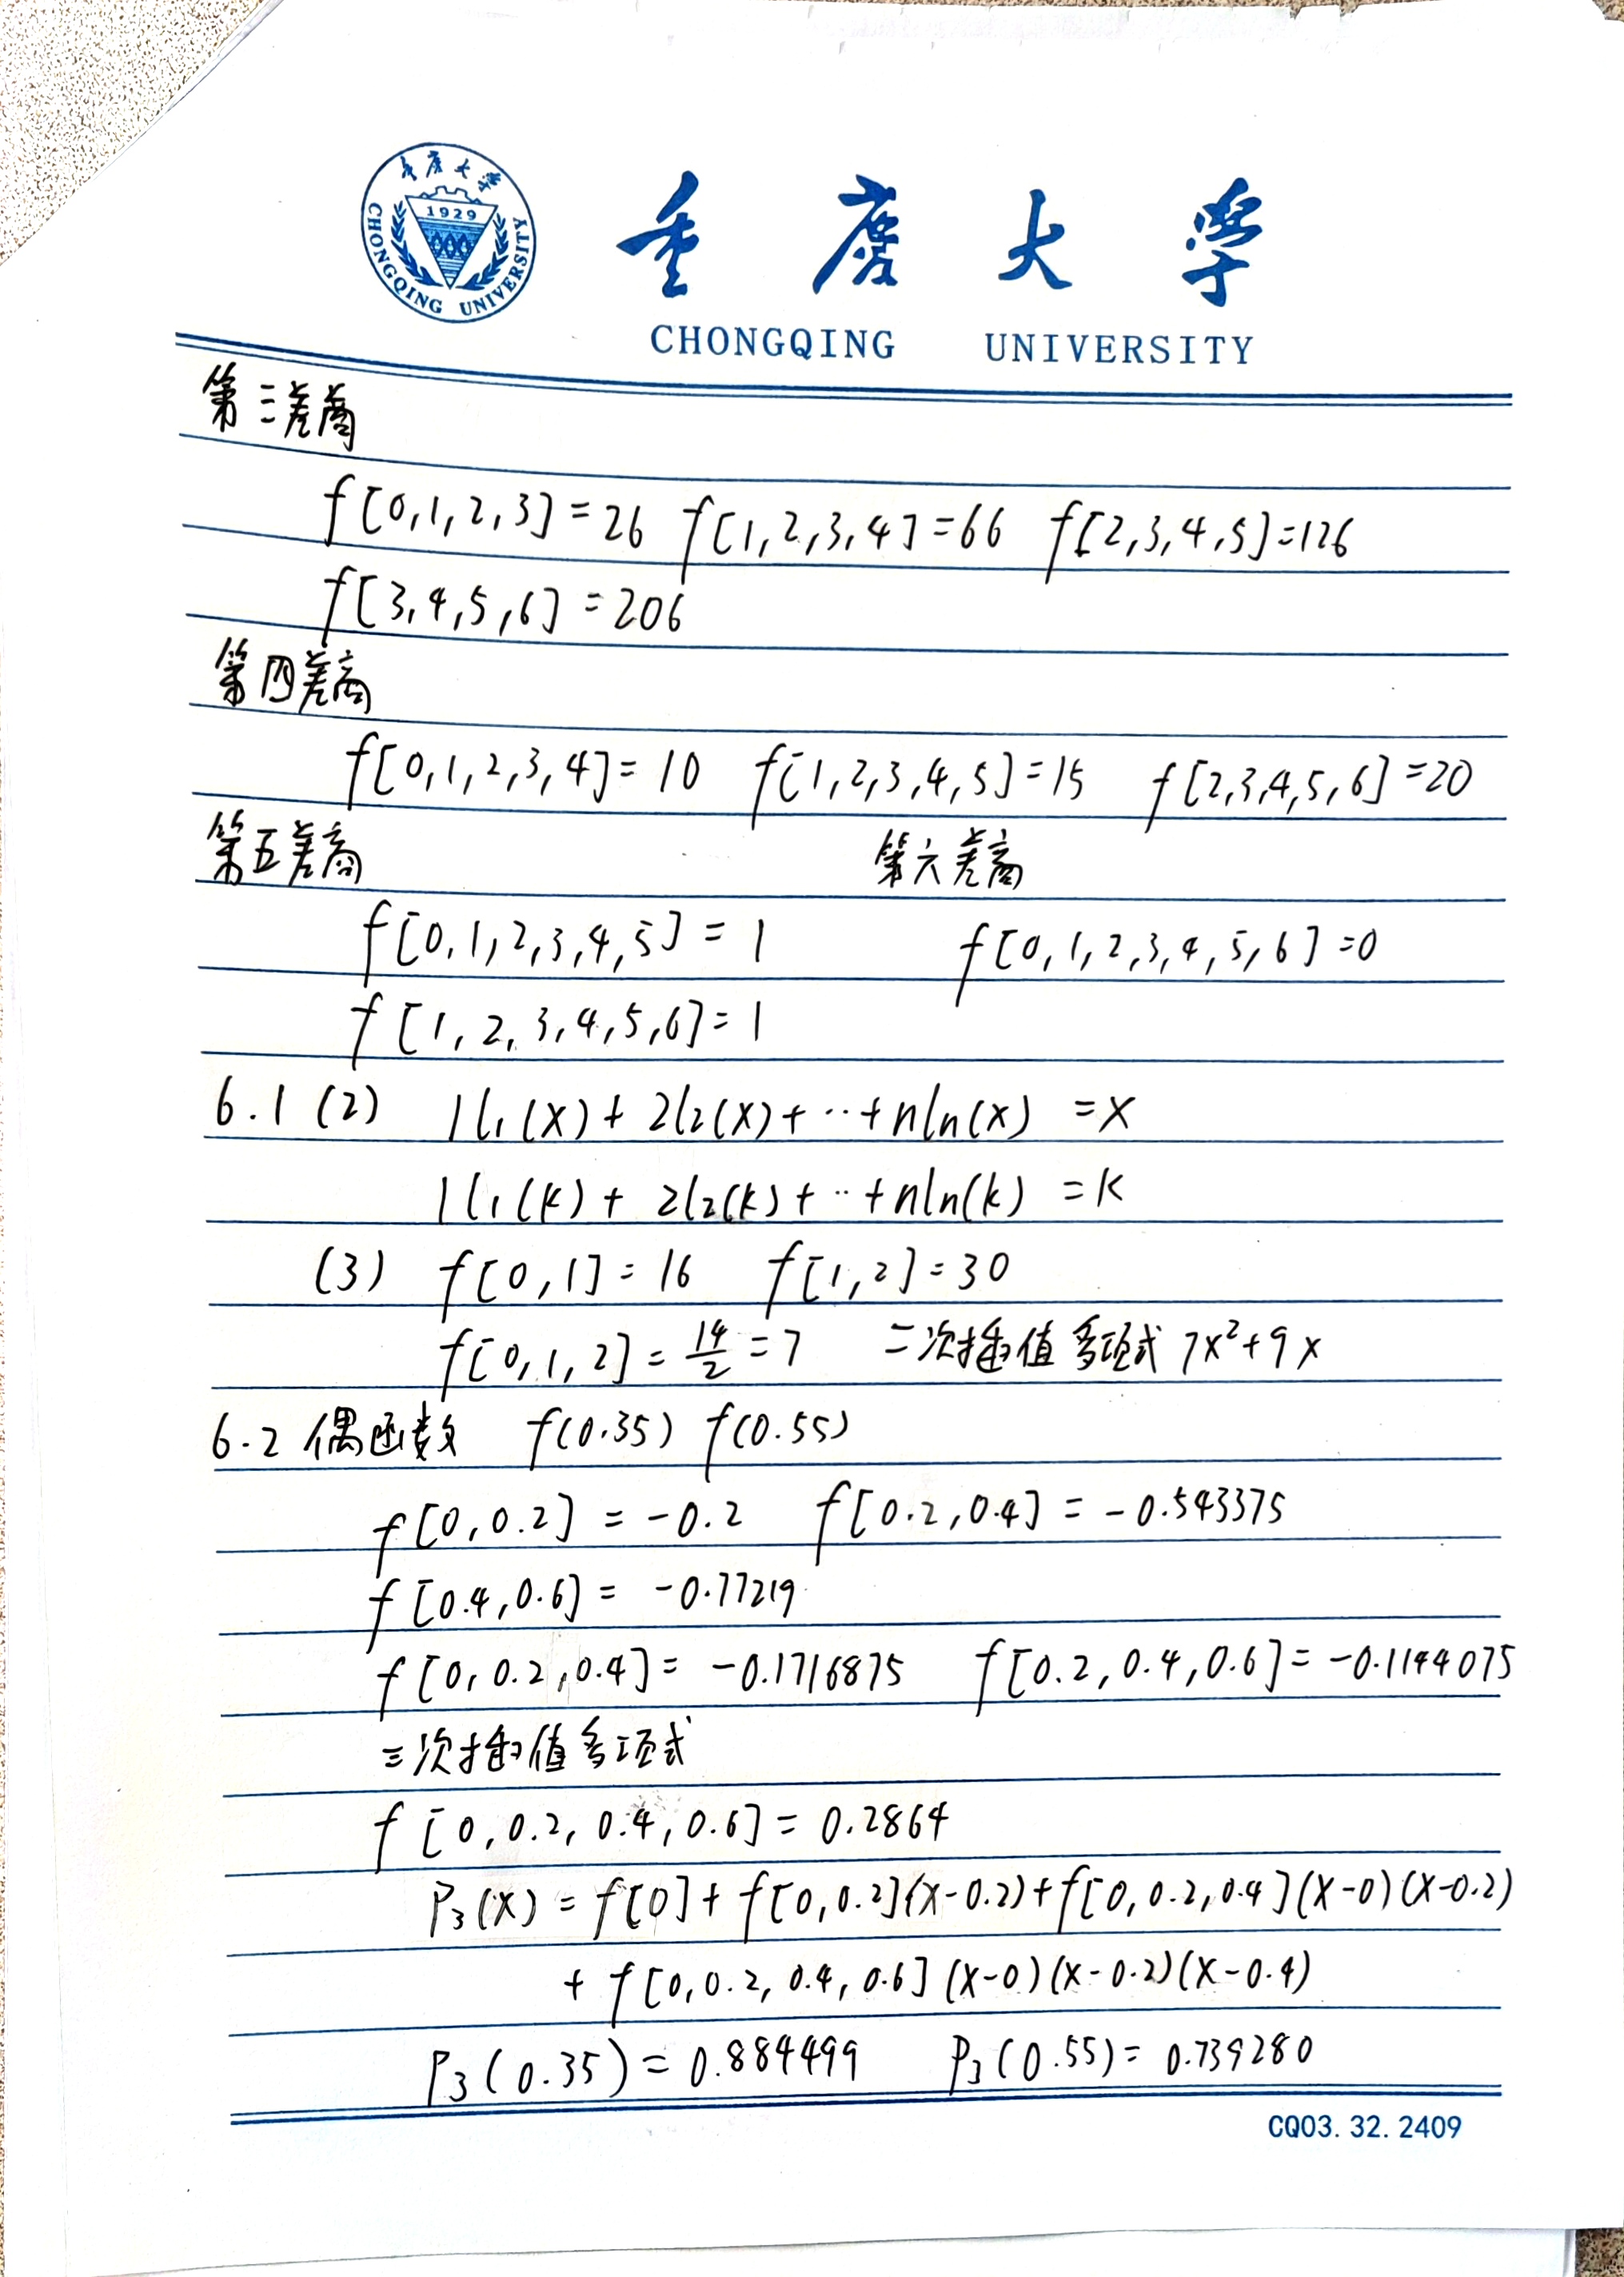 重庆大学
1929
CHONGQING UNIVERSITY
重庆大学
CHONGQING UNIVERSITY
第三差商
f[0,1,2,3]=26 f[1,2,3,4]=66 f[2,3,4,5]=126
f[3,4,5,6]=206
第四差商
f[0,1,2,3,4]=10 f[1,2,3,4,5]=15 f[2,3,4,5,6]=20
第五差商 第六差商
f[0,1,2,3,4,5]=1 f[0,1,2,3,4,5,6]=0
f[1,2,3,4,5,6]=1
6.1(2) 1l₁(x)+2l₂(x)+…+nln(x)=x
1l₁(k)+2l₂(k)+…+nln(k)=k
(3) f[0,1]=16 f[1,2]=30
f[0,1,2]=14/2=7 二次插值多项式 7x²+9x
6.2 偶函数 f(0.35) f(0.55)
f[0,0.2]=-0.2 f[0.2,0.4]=-0.543375
f[0.4,0.6]=-0.77219
f[0,0.2,0.4]=-0.1716875 f[0.2,0.4,0.6]=-0.1144075
三次插值多项式
f[0,0.2,0.4,0.6]=0.2864
P₃(x)=f[0]+f[0,0.2](x-0.2)+f[0,0.2,0.4](x-0)(x-0.2)
+f[0,0.2,0.4,0.6](x-0)(x-0.2)(x-0.4)
P₃(0.35)=0.884499 P₃(0.55)=0.739280
CQ03.32.2409